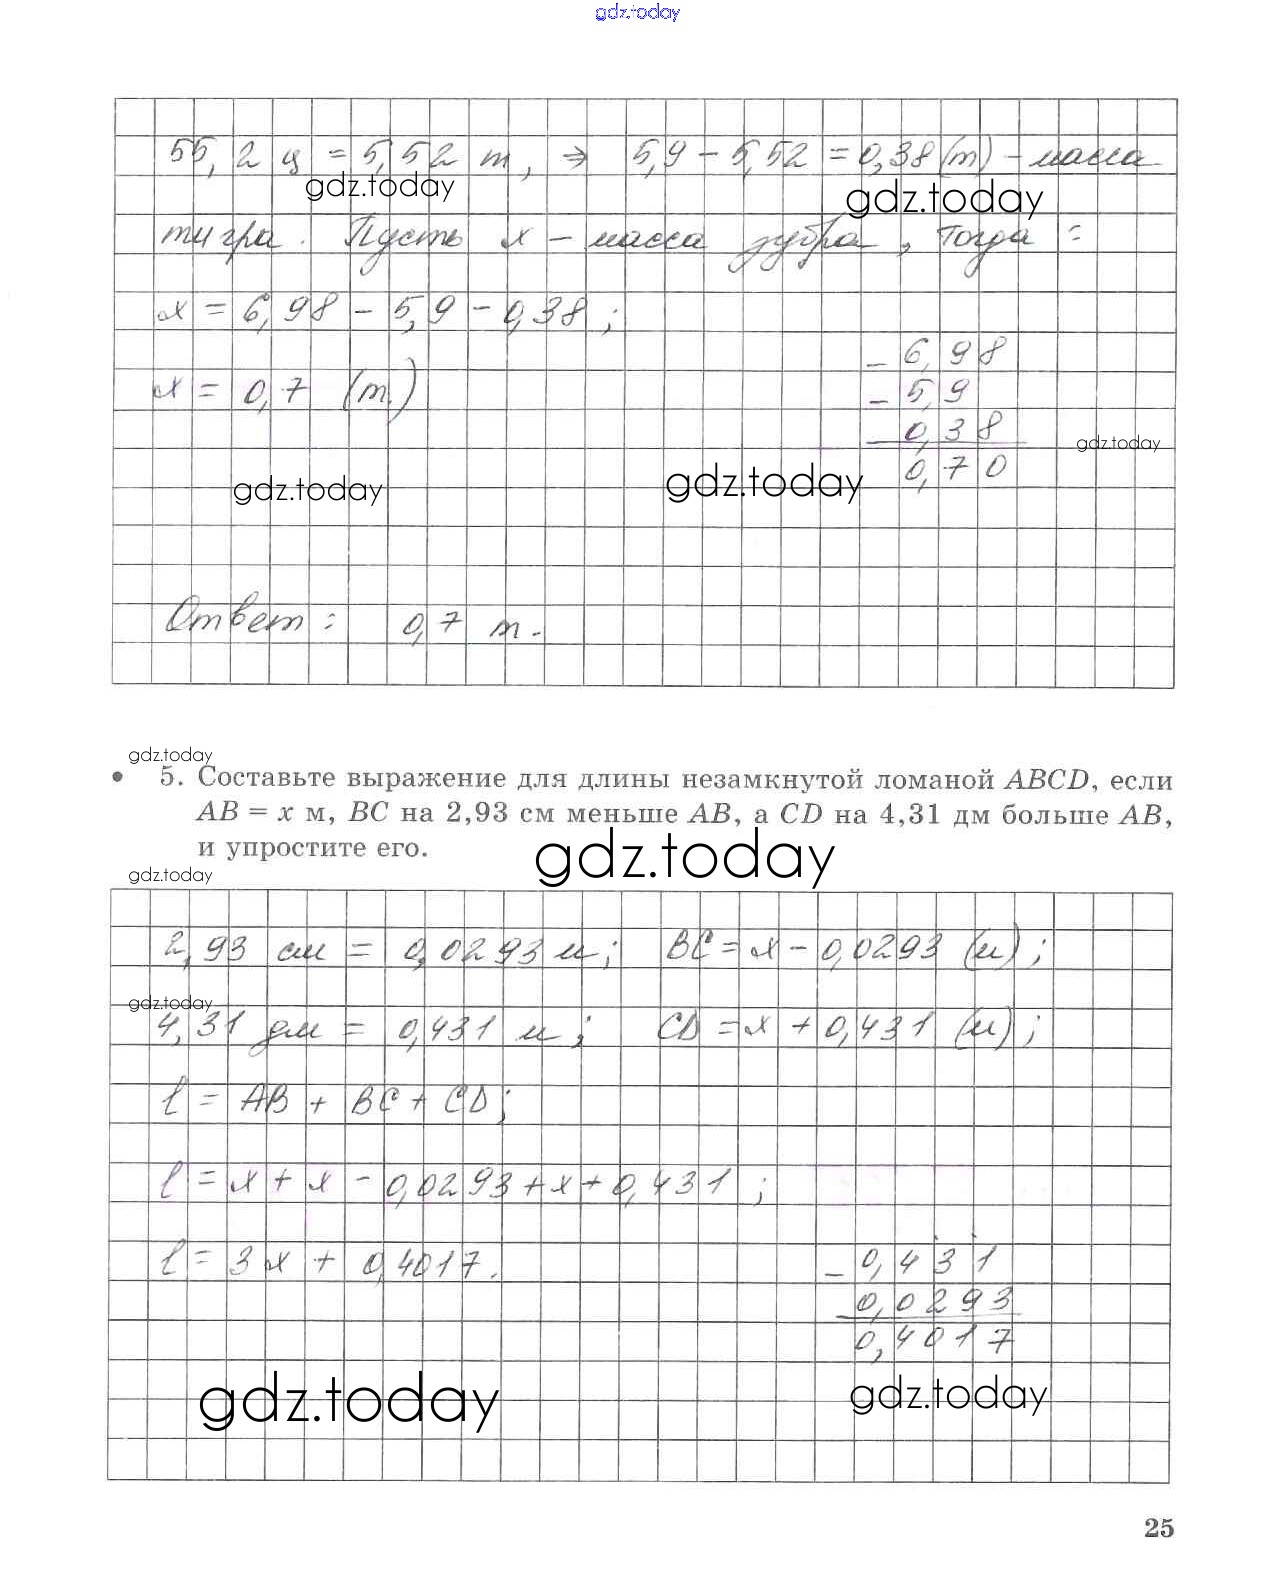 gdz.today
55,2 ц = 5,52 т, ⇒ 5,9 - 5,52 = 0,38 (т) - масса
gdz.today gdz.today
тигра. Пусть х - масса зубра, тогда :
х = 6,98 - 5,9 - 0,38 ;
- 6,98
х = 0,7 (т)
- 5,9
0,38
gdz.today
0,70
gdz.today gdz.today
Ответ : 0,7 т.
gdz.today
• 5. Составьте выражение для длины незамкнутой ломаной ABCD, если
AB = x м, BC на 2,93 см меньше AB, а CD на 4,31 дм больше AB,
и упростите его.
gdz.today
gdz.today
2,93 см = 0,0293 м ; BC = x - 0,0293 (м) ;
gdz.today
4,31 дм = 0,431 м ; CD = x + 0,431 (м) ;
l = AB + BC + CD ;
l = x + x - 0,0293 + x + 0,431 ;
l = 3x + 0,4017.
- 0,431
0,0293
0,4017
gdz.today gdz.today
25